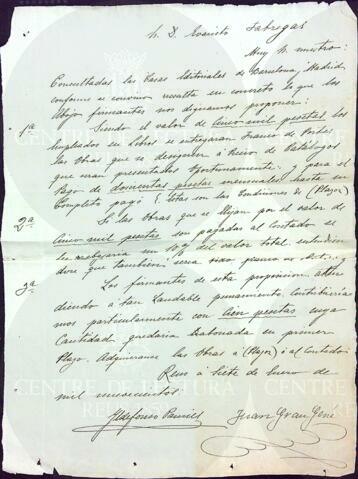 M. D. Evaristo Fabregas
Muy Sr. nuestro:
Consultadas las Casas Editoriales de Barcelona, Madrid,
conforme se convino resulta en concreto lo que los
Abajo firmantes nos dignamos proponer:
1ª Siendo el valor de Cinco mil pesetas los
empleados en libros se entregaran Franco de Portes
las Obras que se designen á Precio de Catálogos
que seran presentados oportunamente, y para el
Pago de doscientas pesetas mensuales hasta su
Completo pago. Estas son las Condiciones de (Plazos)
2ª Si las Obras que se elijan por el valor de
Cinco mil pesetas son pagadas al Contado se
les rebajaria un 10% del valor total, entendien
dose que tambien seria
3ª Los firmantes de esta proposicion aten
diendo a tan laudable pensamiento, contribuiria
mos particularmente con Cien pesetas cuya
Cantidad quedaria abonada en primer
Plazo. Adquieranse las Obras á (Plazos) ó al Contado.
Reus á Siete de Enero de
mil novecientos
Ildefonso Juan Grau Gené
CENTRE DE LECTURA
REUS